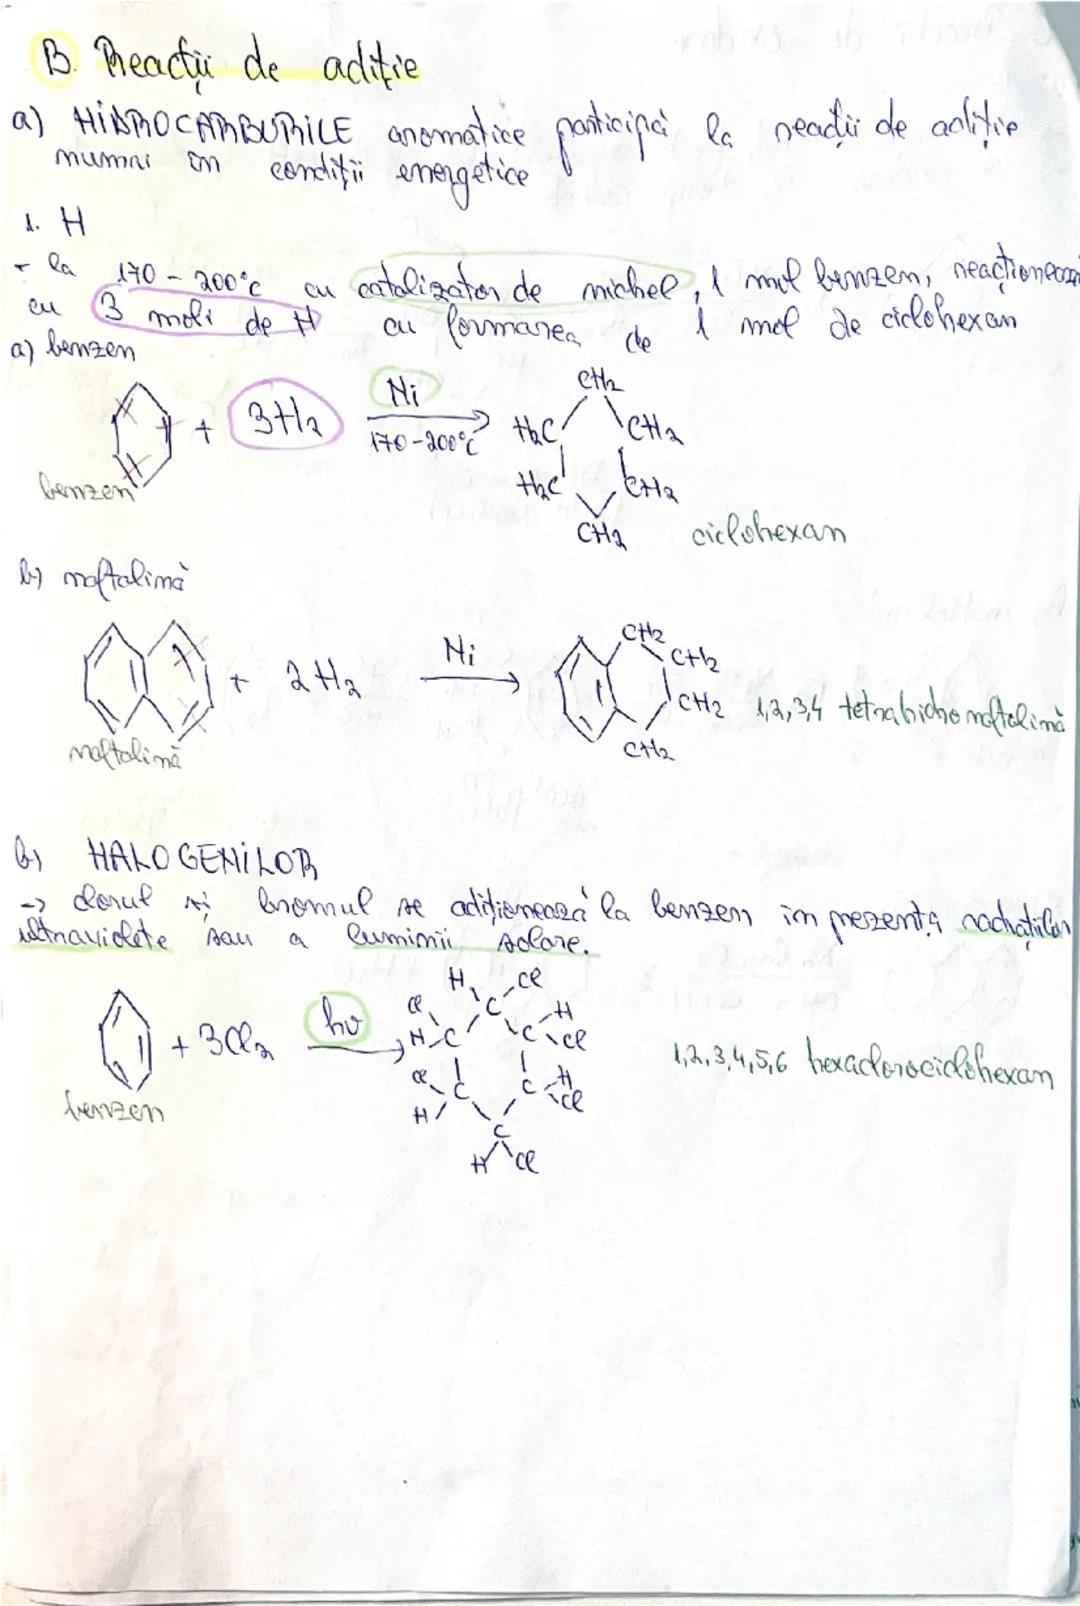 B. Reacții de adiție
a) HIDROCARBURILE aromatice participă la reacții de adiție
numai în condiții energetice
1. H
- la 170 - 200°C cu catalizator de nichel, 1 mol benzen, reacționează
cu 3 moli de H cu formarea de 1 mol de ciclohexan
a) benzen
+ 3H2 Ni 170-200°C
CH2
H2C CH2
H2C CH2
CH2
benzen
ciclohexan
b) naftalină
+ 2H2 Ni
CH2
CH2
CH2
CH2
1,2,3,4 tetrahidronaftalină
naftalină
b) HALOGENILOR
-> clorul și bromul se adiționează la benzen în prezența radiațiilor
ultraviolete sau a luminii solare.
+ 3Cl2 hν
H Cl
Cl C H
H-C C Cl
Cl C C H
H Cl
C
H Cl
benzen
1,2,3,4,5,6 hexaclorociclohexan